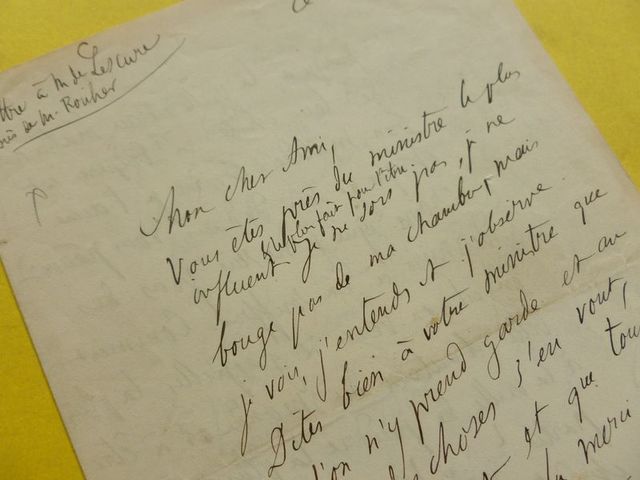 ttre à M. de Lescure
près de M. Rouher
Mon cher Ami,
Vous êtes près du ministre le plus
et le plus fait pour l'être.
influent je ne sors pas, je ne
bouge pas de ma chambre, mais
je vois, j'entends et j'observe.
Dites bien à votre ministre que
l'on n'y prend garde et au
choses s'en vont,
et que tout
la merci